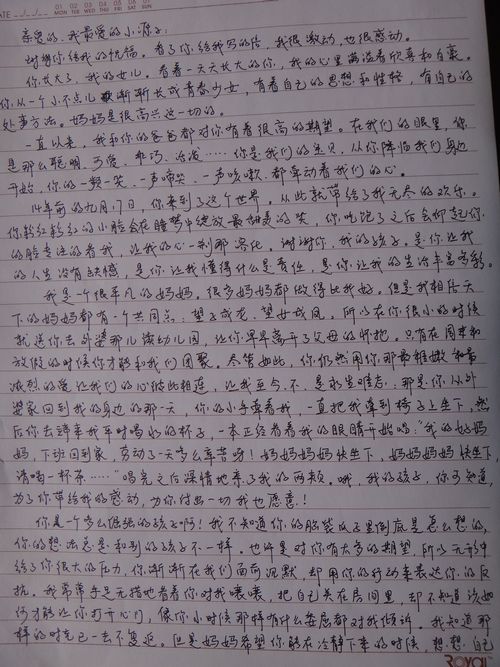 DATE
MON TUE WED THU FRI SAT SUN
亲爱的,我最爱的小源子:
谢谢你给我的祝福。看了你给我写的信,我很激动,也很感动。
你长大了,我的女儿。看着一天天长大的你,我的心里满溢着欣喜和自豪。
你从一个小不点儿渐渐长成青春少女,有着自己的思想和性格,有自己的
处事方法。妈妈是很高兴这一切的。
一直以来,我和你的爸爸都对你有着很高的期望。在我们的眼里,你
是那么聪明、可爱、乖巧、活泼……你是我们的宝贝,从你降临我们身边
开始,你的一颦一笑、一声啼哭、一声咳嗽都牵动着我们的心。
14年前的九月17日,你来到了这个世界。从此就带给了我无尽的欢乐。
你粉红粉红的小脸会在睡梦中绽放最甜美的笑,你吃饱了之后会仰起你
的脸专注的看我,让我的心一刹那亮化。谢谢你,我的孩子。是你让我
的人生没有缺憾,是你让我懂得什么是责任,是你让我的生活丰富多彩。
我是一个很平凡的妈妈。很多妈妈都做得比我好。但是我相信天
下的妈妈都有一个共同点:望子成龙、望女成凤。所以在你很小的时候
就送你去外婆那儿读幼儿园,让你早早离开了父母的怀抱。只有在周末和
放假的时候你才能和我们团聚。尽管如此,你仍然用你那最稚嫩和最
浓烈的爱让我们的心彼此相连,让我至今、不、是永生难忘:那是你从外
婆家回到我的身边的那一天,你的小手牵着我,一直把我牵到椅子上坐下,然
后你去端来我平时喝水的杯子,一本正经看着我的眼睛开始唱:“我的好妈
妈,下班回到家,劳动了一天多么辛苦呀!妈妈妈妈快坐下,妈妈妈妈快坐下,
请喝一杯茶……”唱完之后深情地亲了我的两颊。哦,我的孩子,你可知道,
为了你带给我的感动,为你付出一切我也愿意!
你是一个多么倔强的孩子啊!我不知道你的脑袋瓜子里倒底是怎么想的,
你的想法总是和别的孩子不一样。也许是对你有太多的期望,所以无形中
给了你很大的压力,你渐渐在我们面前沉默,却用你的行动来表达你的反
抗。我常常手足无措地看着你对我嘿嘿,把自己关在房间里,却不知道该如
何才能让你打开心门,像你小时候那样有什么委屈都对我倾诉。我知道那
样的时光已一去不复返。但是妈妈希望你能在冷静下来的时候,想想自己
ROYAL